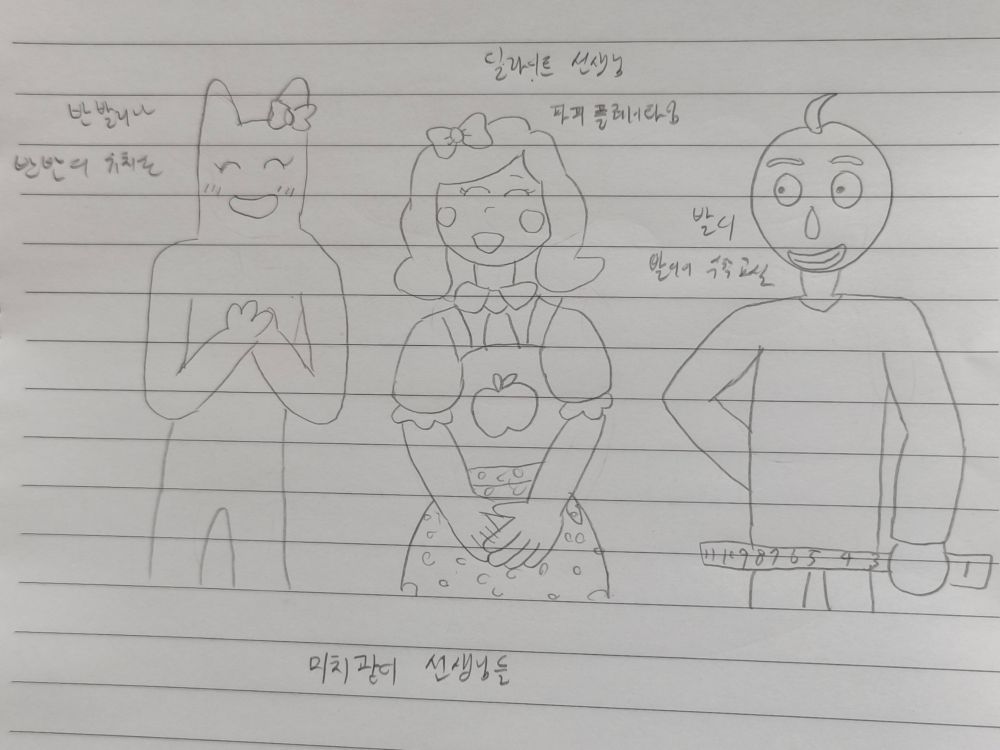 딜라이트 선생님
파피 플레이타임
반발리나
반반의 유치원
발디
발디의 수학 교실
11 10 9 8 7 6 5 4 3 1
미치광이 선생님들